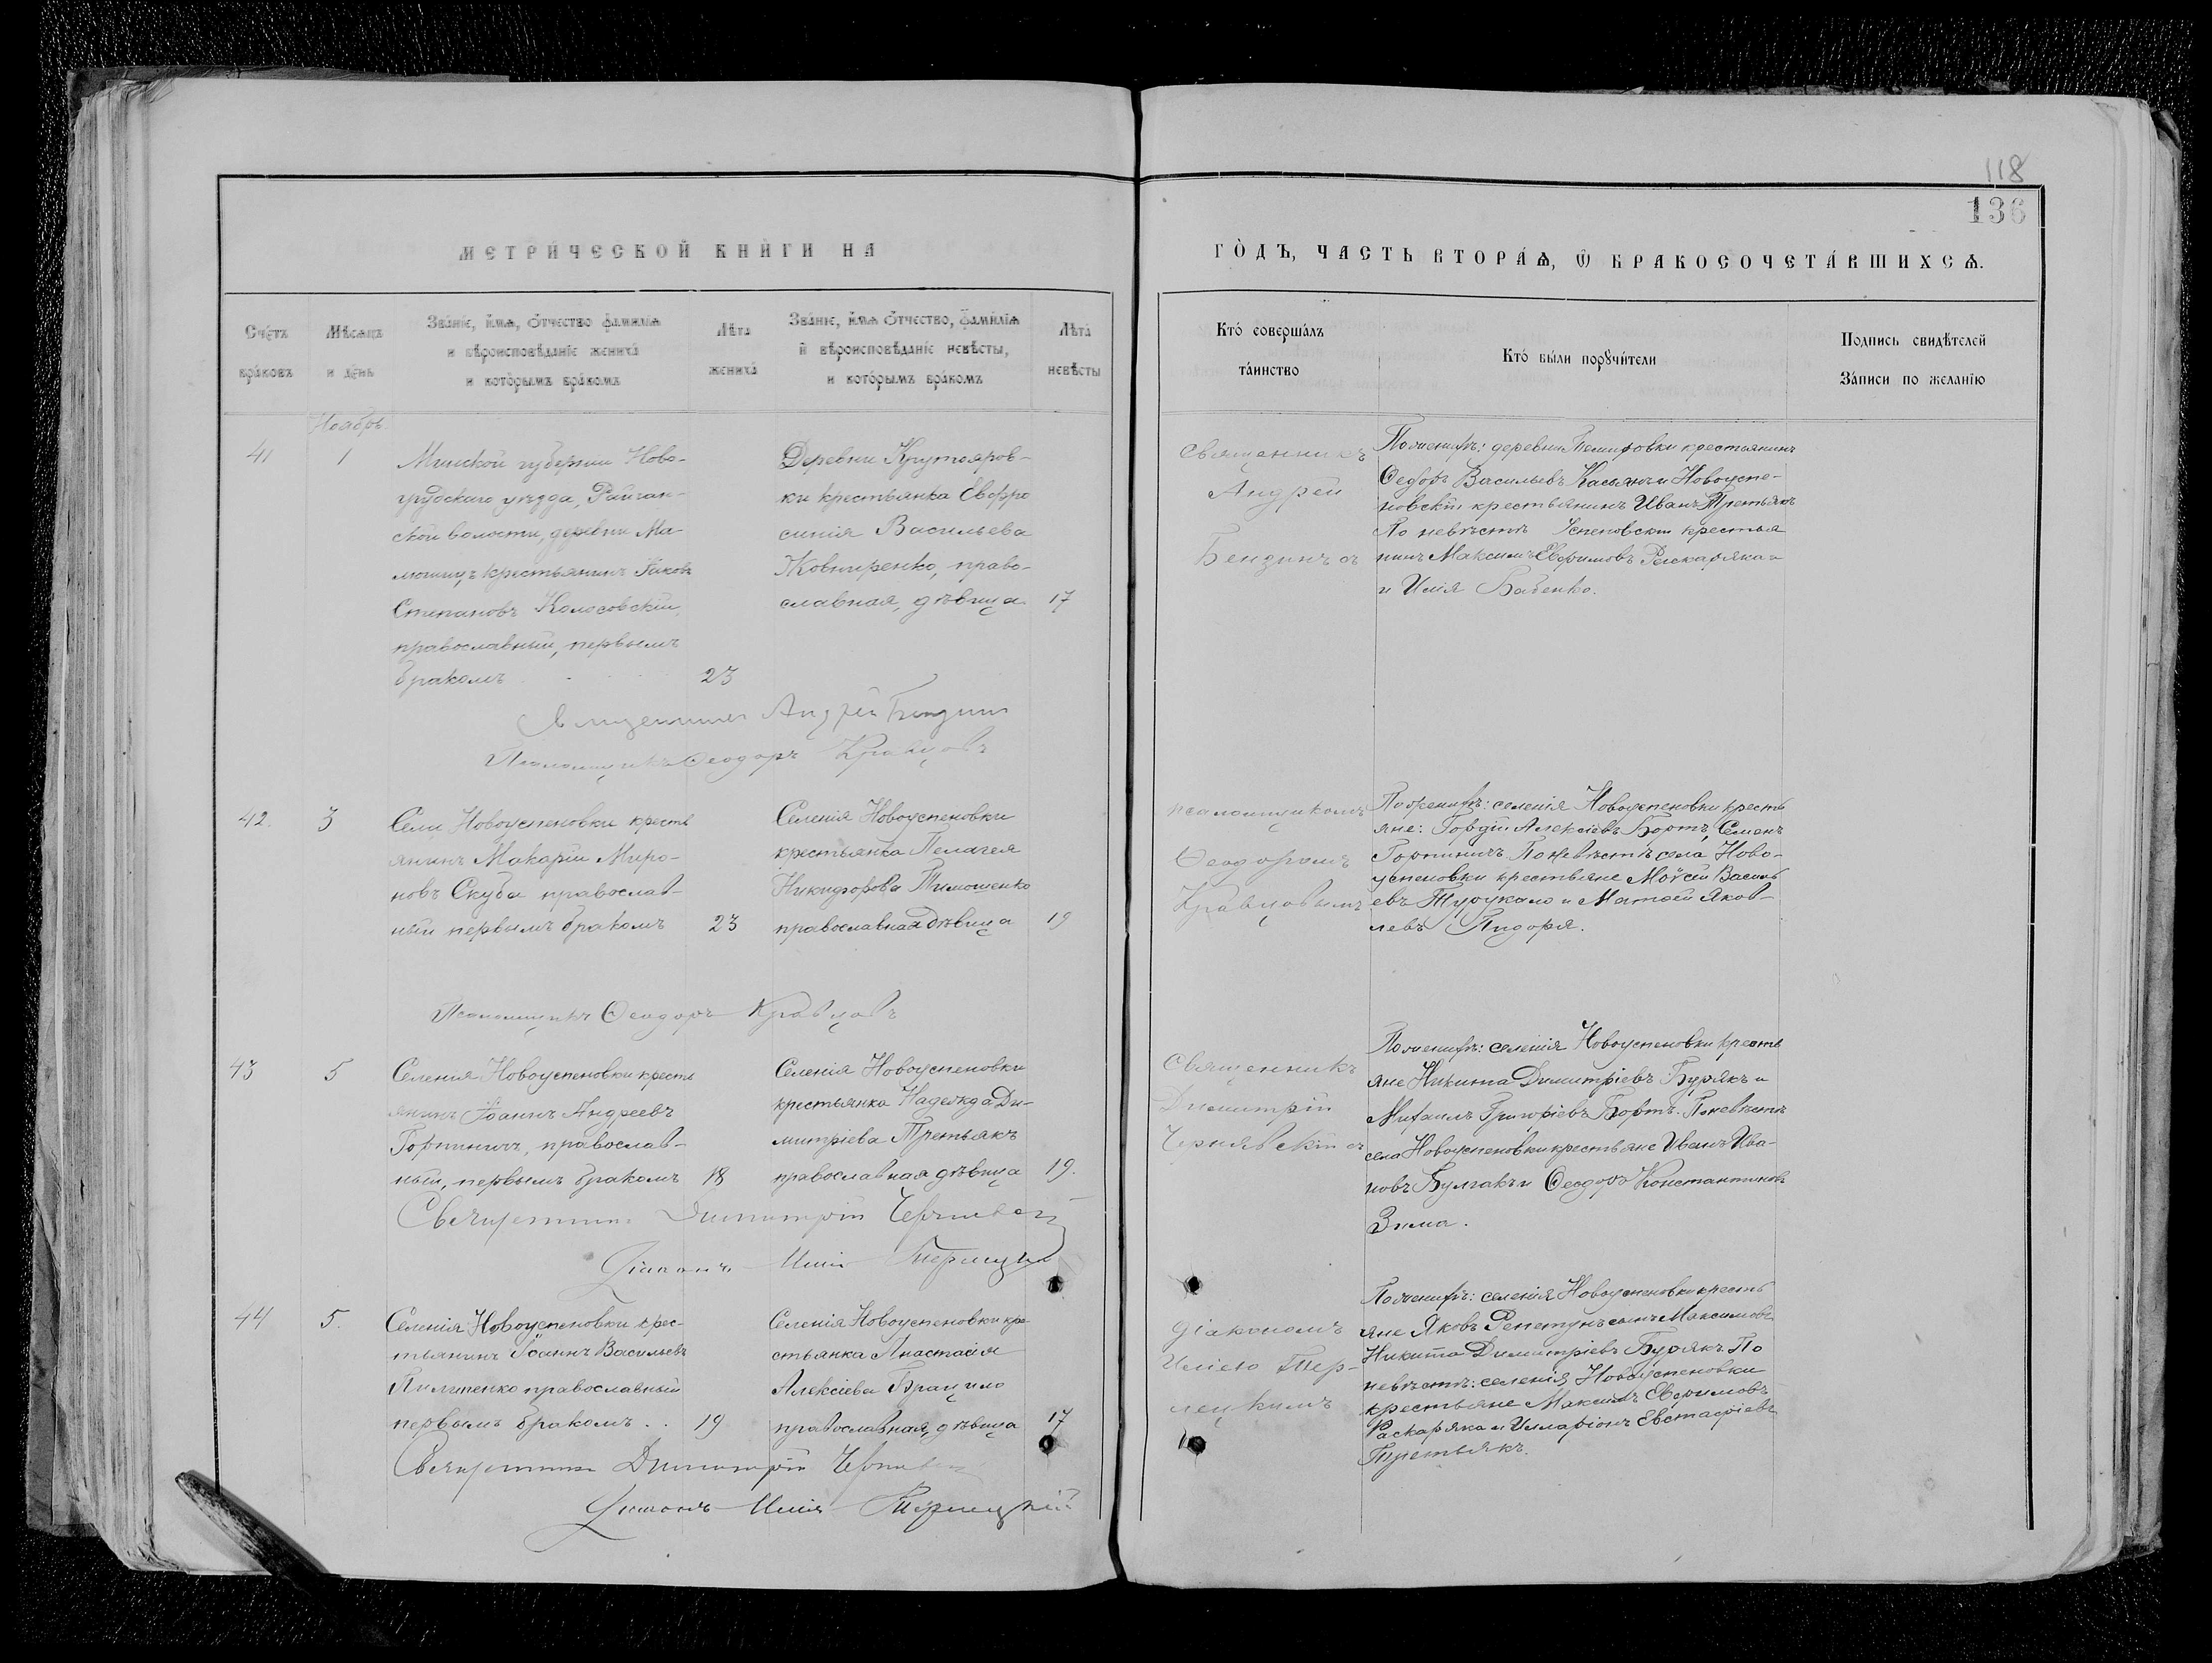 118
136
МЕТРИ́ЧЕСКОЙ КНИ́ГИ НА
ГО́ДЪ, ЧАСТЬ ВТОРА́Ѧ, Ѿ БРАКОСОЧЕТА́ВШИХСѦ.
Сче́тъ
бра́ковъ
Мѣ́сѧцъ
и де́нь
Зва́нїе, и́мѧ, о́тчество фами́лїѧ
и вѣроисповѣ́данїе жениха́
и кото́рымъ бра́комъ
Лѣ́та
жениха́
Зва́нїе, и́мѧ о́тчество, фами́лїѧ
и вѣроисповѣ́данїе невѣ́сты,
и кото́рымъ бра́комъ
Лѣ́та
невѣ́сты
Кто́ соверша́лъ
та́инство
Кто́ бы́ли порꙋчи́тели
Подпись свидѣ́телей
За́писи по жела́нїю
Ноябрь
41
1
Минской губерніи Ново-
грудскаго уѣзда,
ской волости, деревни Ма-
крестьянинъ Яковъ
Степановъ Колосовскій,
православный, первымъ
бракомъ
23
Деревни Крутояров-
ки крестьянка Евфро
синія Васильева
Ковширенко, право-
славная, дѣвица
17
Священникъ
Андрей
Бензинъ съ
По женихѣ: деревни крестьянинъ
Ѳедоръ Васильевъ Касьянъ и Новоуспе-
новскій крестьянинъ Иванъ Третьякъ
По невѣстѣ Успеновскій крестья
нинъ Максимъ Евфимовъ Раскаряка
и Илія Бабенко.
Священникъ Андрей Бензинъ
Псаломщикъ Ѳеодоръ Кравцовъ
42.
3
Села Новоуспеновки кресть
янинъ Макарій Миро-
новъ Скуба православ-
ный первымъ бракомъ
23
Селенія Новоуспеновки
крестьянка Пелагея
Никифорова Тимошенко
православная дѣвица
19
псаломщикомъ
Ѳеодоромъ
Кравцовымъ
По женихѣ: селенія Новоуспеновки кресть
яне: Гордій Алексіевъ Бортъ, Семенъ
Горпиничъ По невѣстѣ села Ново-
успеновки крестьяне Моѵсей Василь
евъ Турукало и Матѳей Яков-
левъ Пидоря.
Псаломщикъ Ѳеодоръ Кравцовъ
43
5
Селенія Новоуспеновки кресть
янинъ Іоаннъ Андреевъ
Горпиничъ, православ-
ный, первымъ бракомъ
18
Селенія Новоуспеновки
крестьянка Надежда Ди-
митріева Третьякъ
православная дѣвица
19.
Священникъ
Димитрій
Чернявскій съ
По женихѣ: селенія Новоуспеновки кресть
яне Никита Димитріевъ Бурякъ и
Михаилъ Григоріевъ Бортъ. По невѣстѣ
села Новоуспеновки крестьяне Иванъ Ива-
новъ Булгакъ и Ѳеодоръ Константиновъ
Зима.
Священникъ Димитрій Чернявскій
Діаконъ Илія Терлецкій
44
5.
Селенія Новоуспеновки крес-
тьянинъ Іоаннъ Васильевъ
Пилипенко православный
первымъ бракомъ . .
19
Селенія Новоуспеновки кре
стьянка Анастасія
Алексіева
православная, дѣвица
17
діакономъ
Иліею Тер-
лецкимъ
По женихѣ: селенія Новоуспеновки кресть
яне Яковъ Репетунъ сынъ Максимовъ
Никита Димитріевъ Бурякъ. По
невѣстѣ: селенія Новоуспеновки
крестьяне Максимъ Евфимовъ
Раскаряка и Илларіонъ Евстафіевъ
Третьякъ.
Священникъ Димитрій Чернявскій
Діаконъ Илія Терлецкій